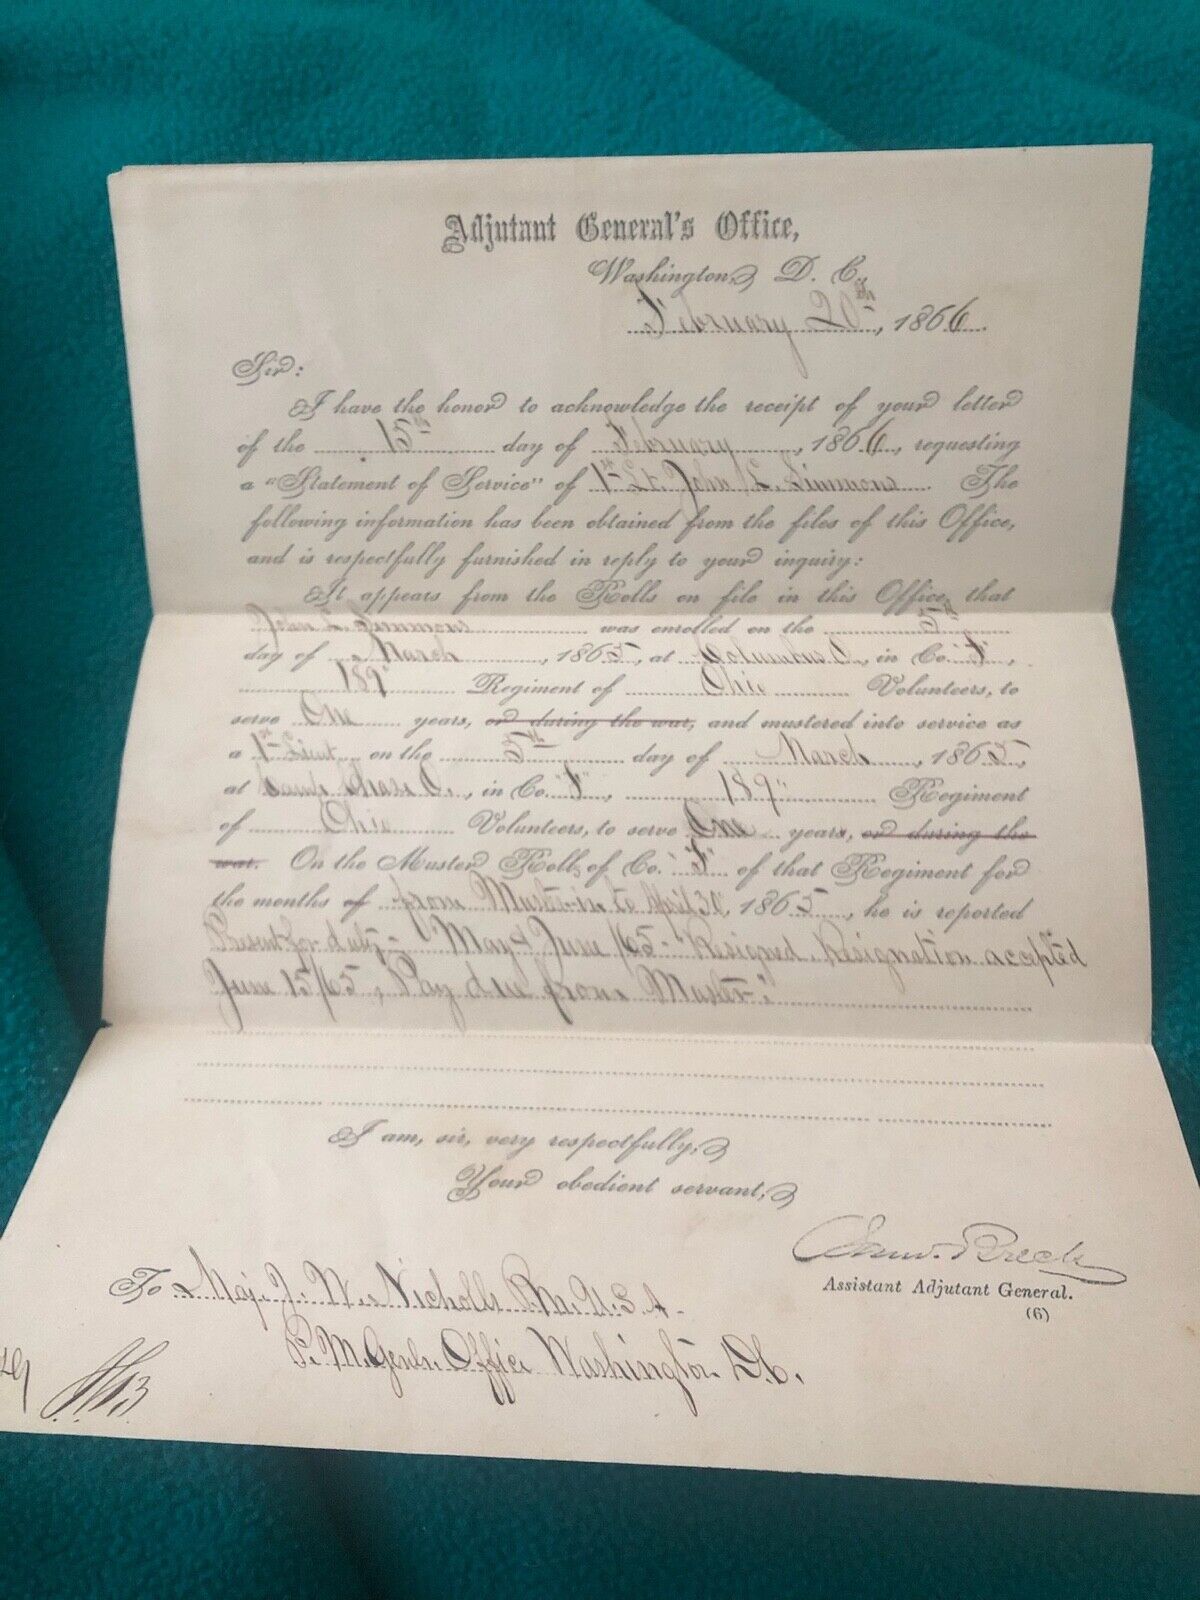 Adjutant General's Office,
Washington, D. C.,
February 20th, 1866.
Sir:
I have the honor to acknowledge the receipt of your letter
of the 15th day of February, 1866, requesting
a "Statement of Service" of 1st Lt. John L. Simmons. The
following information has been obtained from the files of this Office,
and is respectfully furnished in reply to your inquiry:
It appears from the Rolls on file in this Office, that
John L. Simmons was enrolled on the 5th
day of March, 1865, at Columbus O., in Co. "F",
189" Regiment of Ohio Volunteers, to
serve One years, or during the war, and mustered into service as
a 1st Lieut. on the 5th day of March, 1865,
at Camp Chase O., in Co. "F", 189" Regiment
of Ohio Volunteers, to serve One years, or during the
war. On the Muster Roll, of Co. "F" of that Regiment for
the months of from Muster-in to April 30, 1865, he is reported
Present for duty - "May & June /65 - Resigned. Resignation accepted
June 15/65, Pay due from Muster."
I am, sir, very respectfully,
Your obedient servant,
Saml. Breck
Assistant Adjutant General.
(6)
To Maj. J. W. Nicholls P.M. U.S.A.
P. M. Genls. Office Washington D.C.